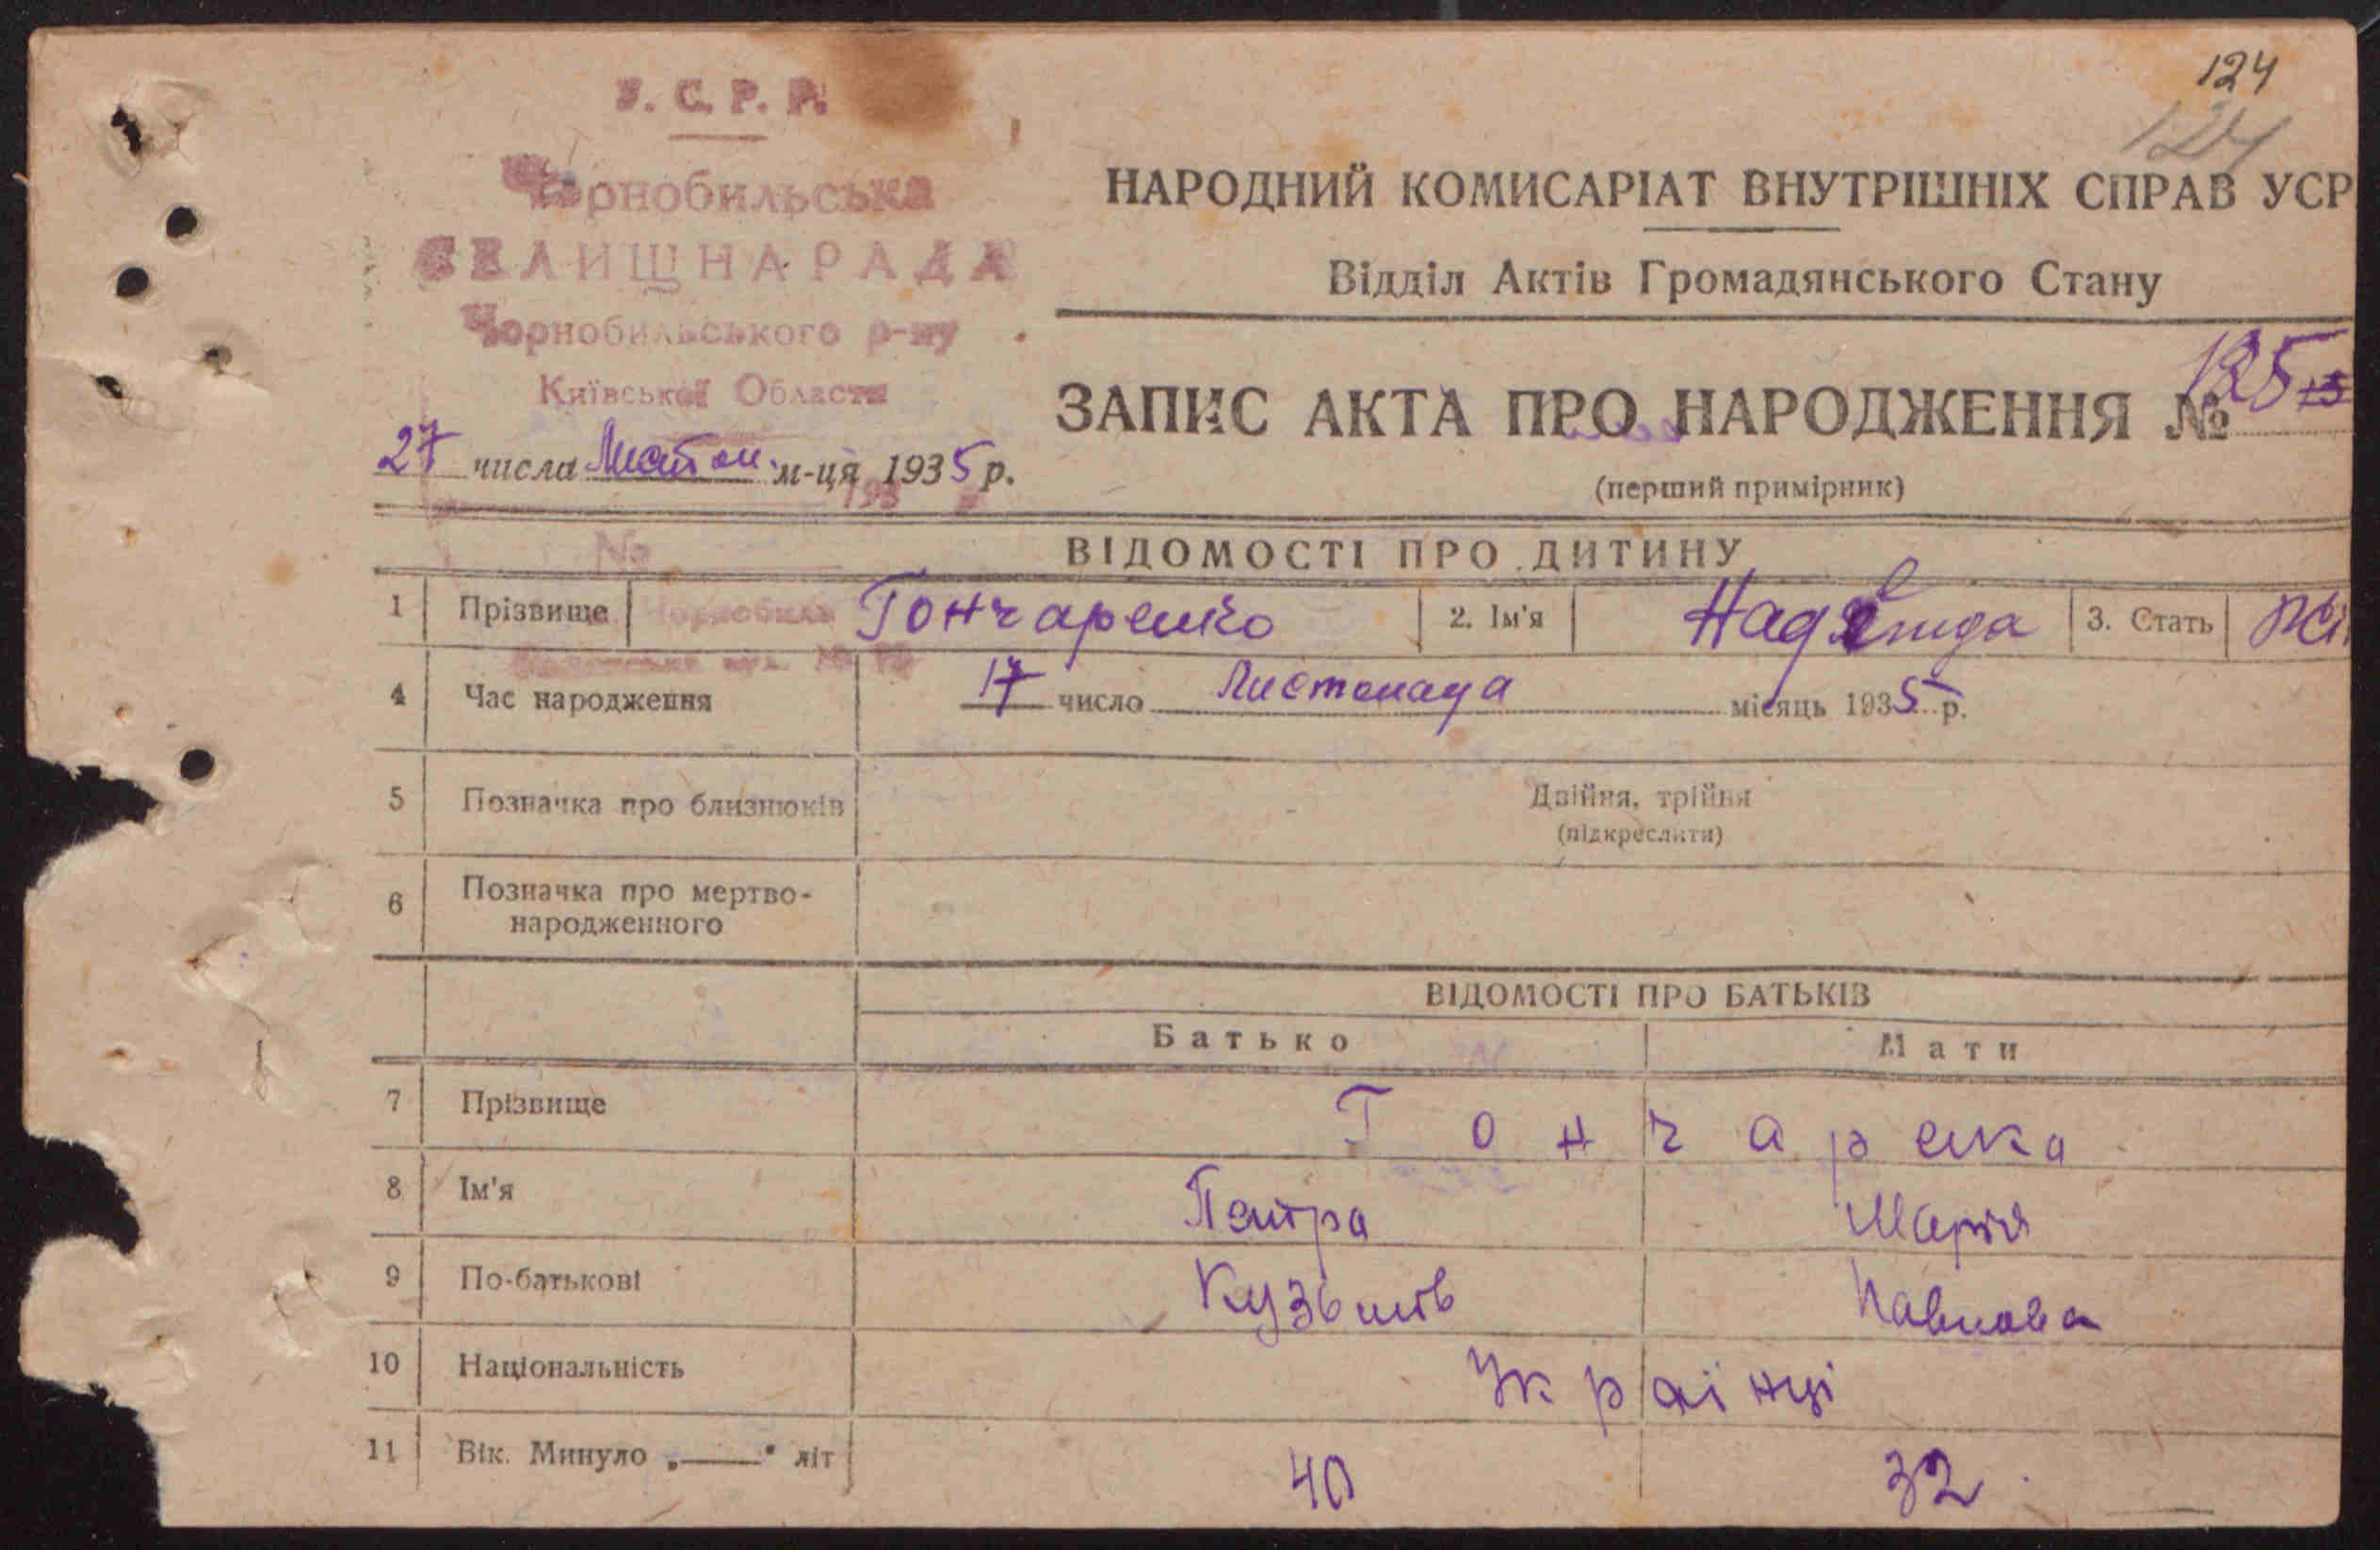 124
124
У. С. Р. Р.
Чорнобильська
СЕЛИЩНА РАДА
Чорнобильського р-ну
Київської Области
27 числа Листоп. м-ця 1935 р.
193
№
НАРОДНИЙ КОМИСАРІАТ ВНУТРІШНІХ СПРАВ УСР
Відділ Актів Громадянського Стану
ЗАПИС АКТА ПРО НАРОДЖЕННЯ № 125
(перший примірник)
ВІДОМОСТІ ПРО ДИТИНУ
1 Прізвище Гончаренко 2. Ім'я Надежида 3. Стать Жі
4 Час народження 17 число Листопада місяць 1935 р.
5 Позначка про близнюків Двійня, трійня
(підкреслити)
6 Позначка про мертво-
народженного
ВІДОМОСТІ ПРО БАТЬКІВ
Батько Мати
7 Прізвище Гончаренка
8 Ім'я Петра Марія
9 По-батькові Кузьмів Павлова
10 Національність Українці
11 Вік. Минуло „——" літ 40 32